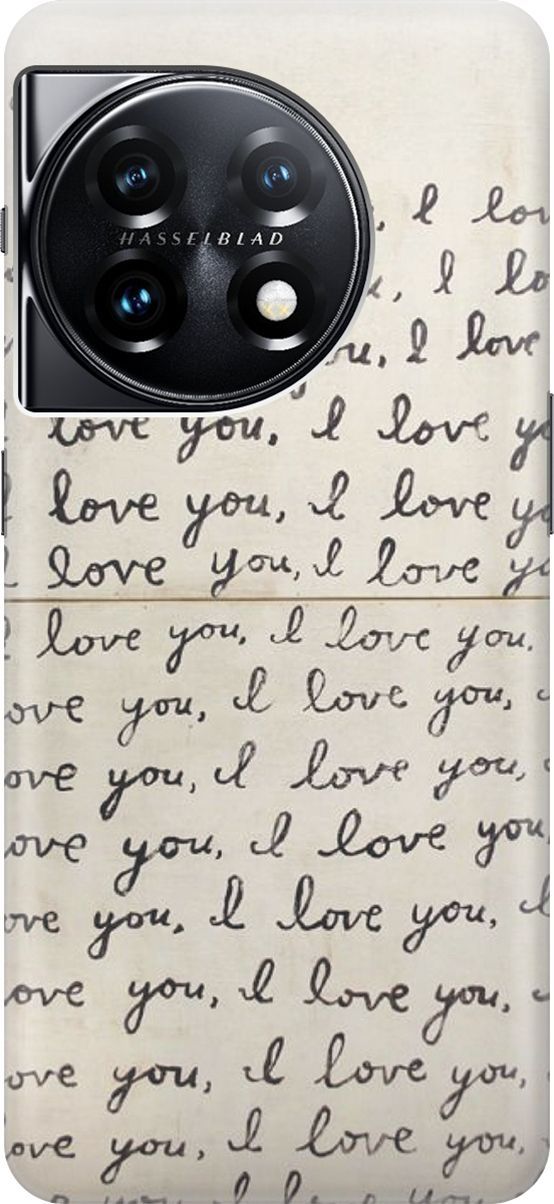 HASSELBLAD
, I lov
, I lo
ou, I love
love you, I love yo
I love you, I love yo
I love you, I love yo
I love you, I love you,
ove you, I love you,
ove you, I love you,
ove you, I love you,
ove you, I love you, I
ove you, I love you,
ove you, I love you,
ove you, I love you,
you, I love you